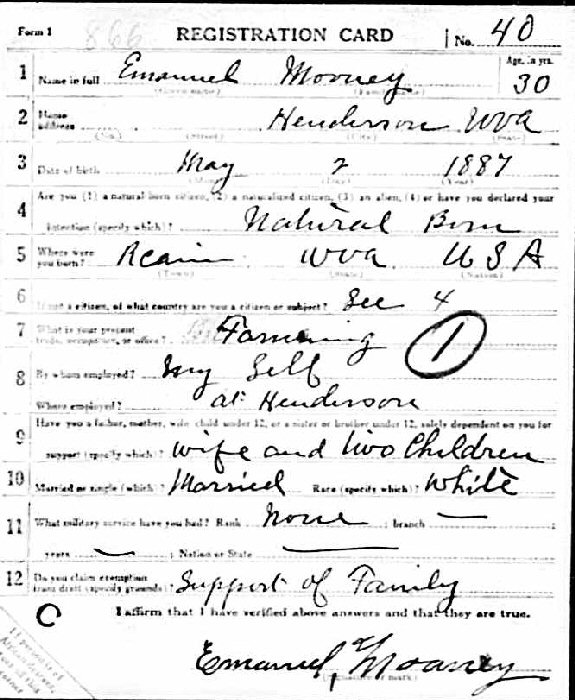 Form 1 866 REGISTRATION CARD No. 40
1 Name in full Emanuel Mooney Age, in yrs. 30
(Given name) (Family name)
2 Home address Henderson WVa
(No.) (Street) (City) (State)
3 Date of birth May 2 1887
(Month) (Day) (Year)
4 Are you (1) a natural born citizen, (2) a naturalized citizen, (3) an alien, (4) or have you declared your
intention (specify which)? Natural Born
5 Where were you born? WVa U S A
(Town) (State) (Nation)
6 If not a citizen, of what country are you a citizen or subject? See 4
7 What is your present trade, occupation, or office? Farming 1
8 By whom employed? My Self
Where employed? at Henderson
9 Have you a father, mother, wife, child under 12, or a sister or brother under 12, solely dependent on you for
support (specify which)? Wife and two Children
10 Married or single (which)? Married Race (specify which)? White
11 What military service have you had? Rank None ; branch — ;
years — ; Nation or State —
12 Do you claim exemption from draft (specify grounds)? Support of Family
I affirm that I have verified above answers and that they are true.
Emanuel Mooney
(Signature or mark)